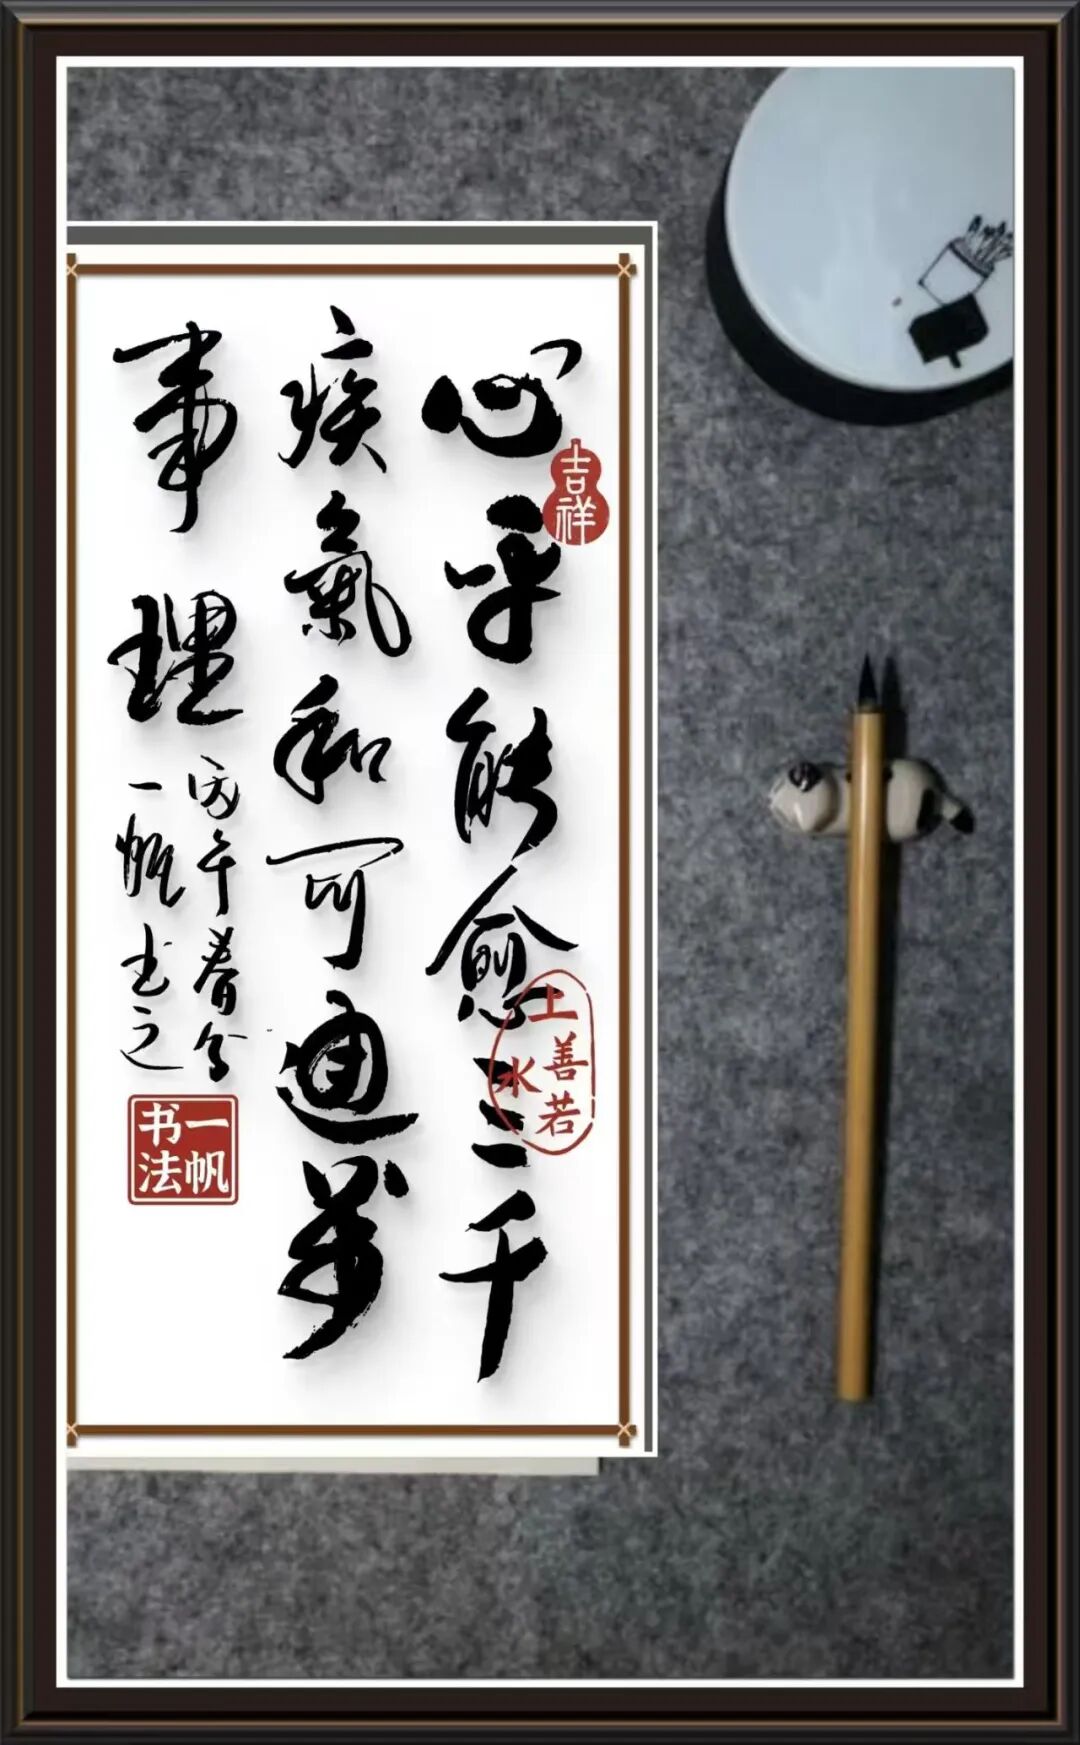 心平能愈三千
疾氣和可通萬
事理
丙午春分
一帆书之
吉祥
上善若水
一帆书法